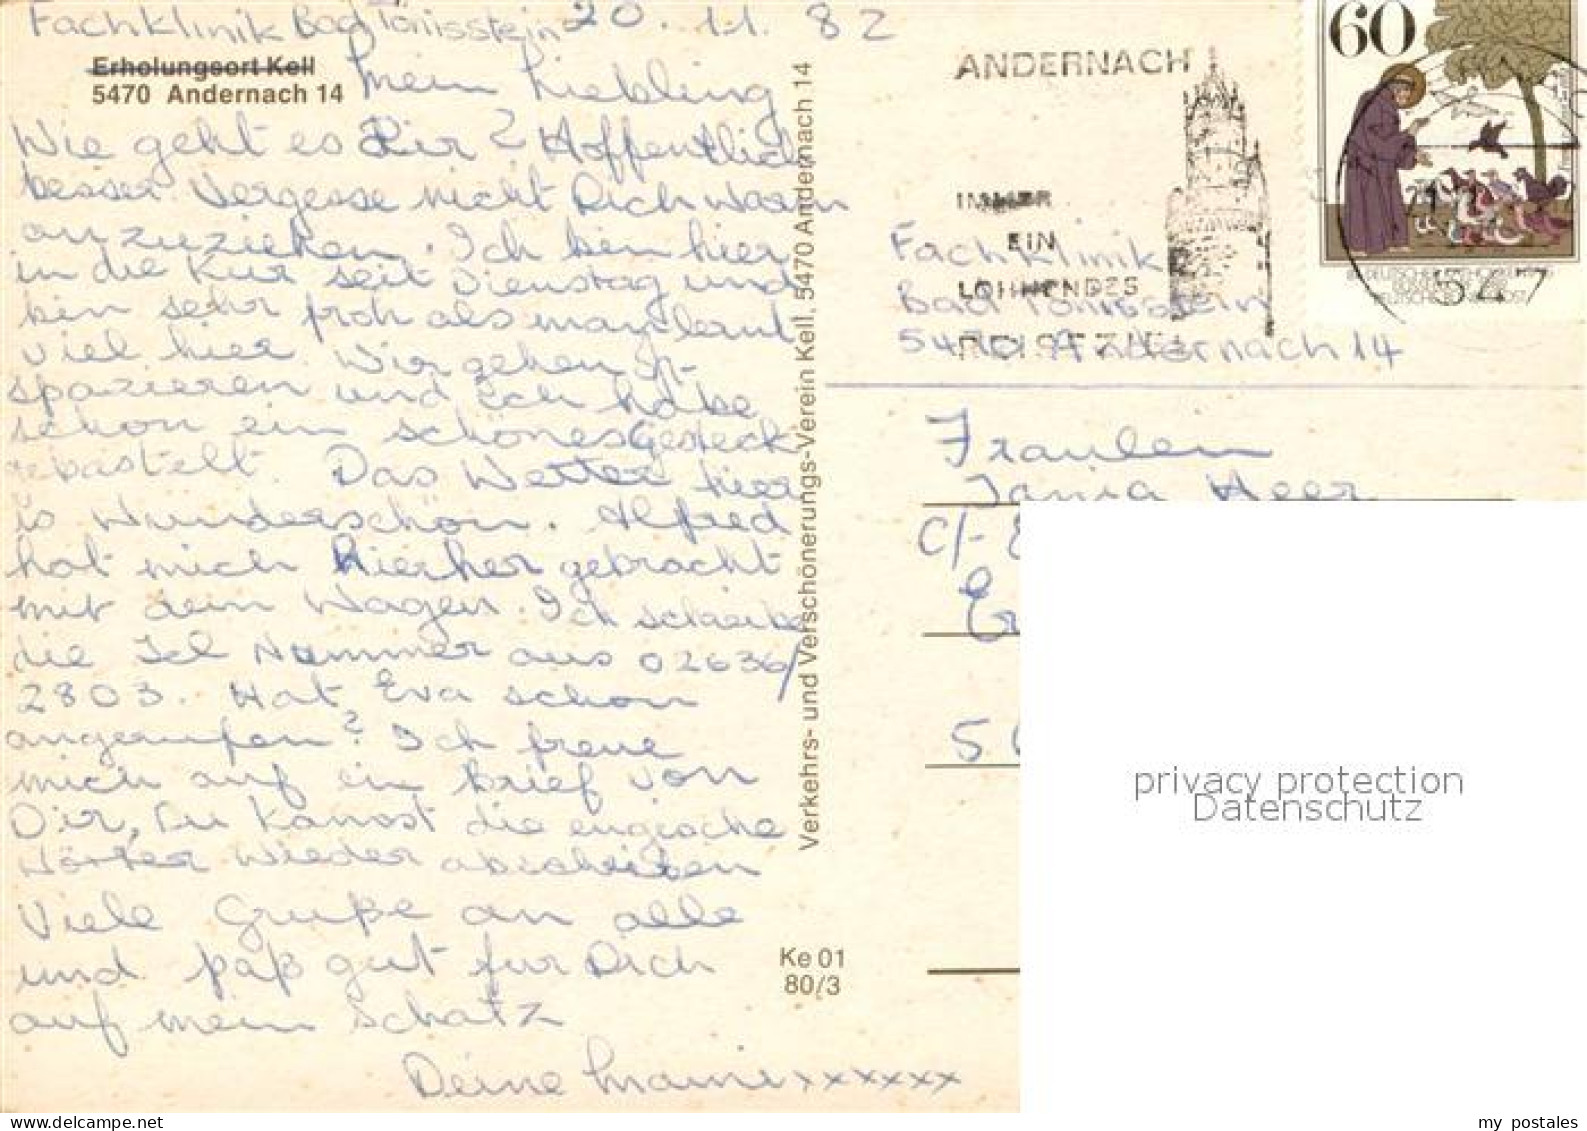 Fachklinik Bad Tönisstein 20. 11. 82
Erholungsort Kell
5470 Andernach 14
Mein Liebling
Wie geht es Dir? Hoffentlich
besser. Vergesse nicht Dich warm
anzuziehen. Ich bin hier
in die Kur seit Dienstag und
bin sehr froh als man lernt
viel hier. Wir gehen
spazieren und ich habe
schon ein schönes Gesteck
gebastelt. Das Wetter hier
is Wunderschön. Alfred
hat mich hierher gebracht
mit dem Wagen. Ich schreibe
die Tel Nummer aus 02636/
2803. Hat Eva schon
angerufen? Ich freue
mich auf ein Brief von
Dir, Du kannst die englische
Wörter wieder abschreiben
Viele Grüße an alle
und paß gut für Dich
auf mein Schatz
Deine Mami xxxxxxx
Verkehrs- und Verschönerungs-Verein Kell, 5470 Andernach 14
Ke 01
80/3
ANDERNACH
IMMER
EIN
LOHNENDES
REISEZIEL
60
547
Fachklinik
Bad Tönisstein
5470 Andernach 14
Fraulein
Tania Heer
c/-
5
privacy protection
Datenschutz
my postales